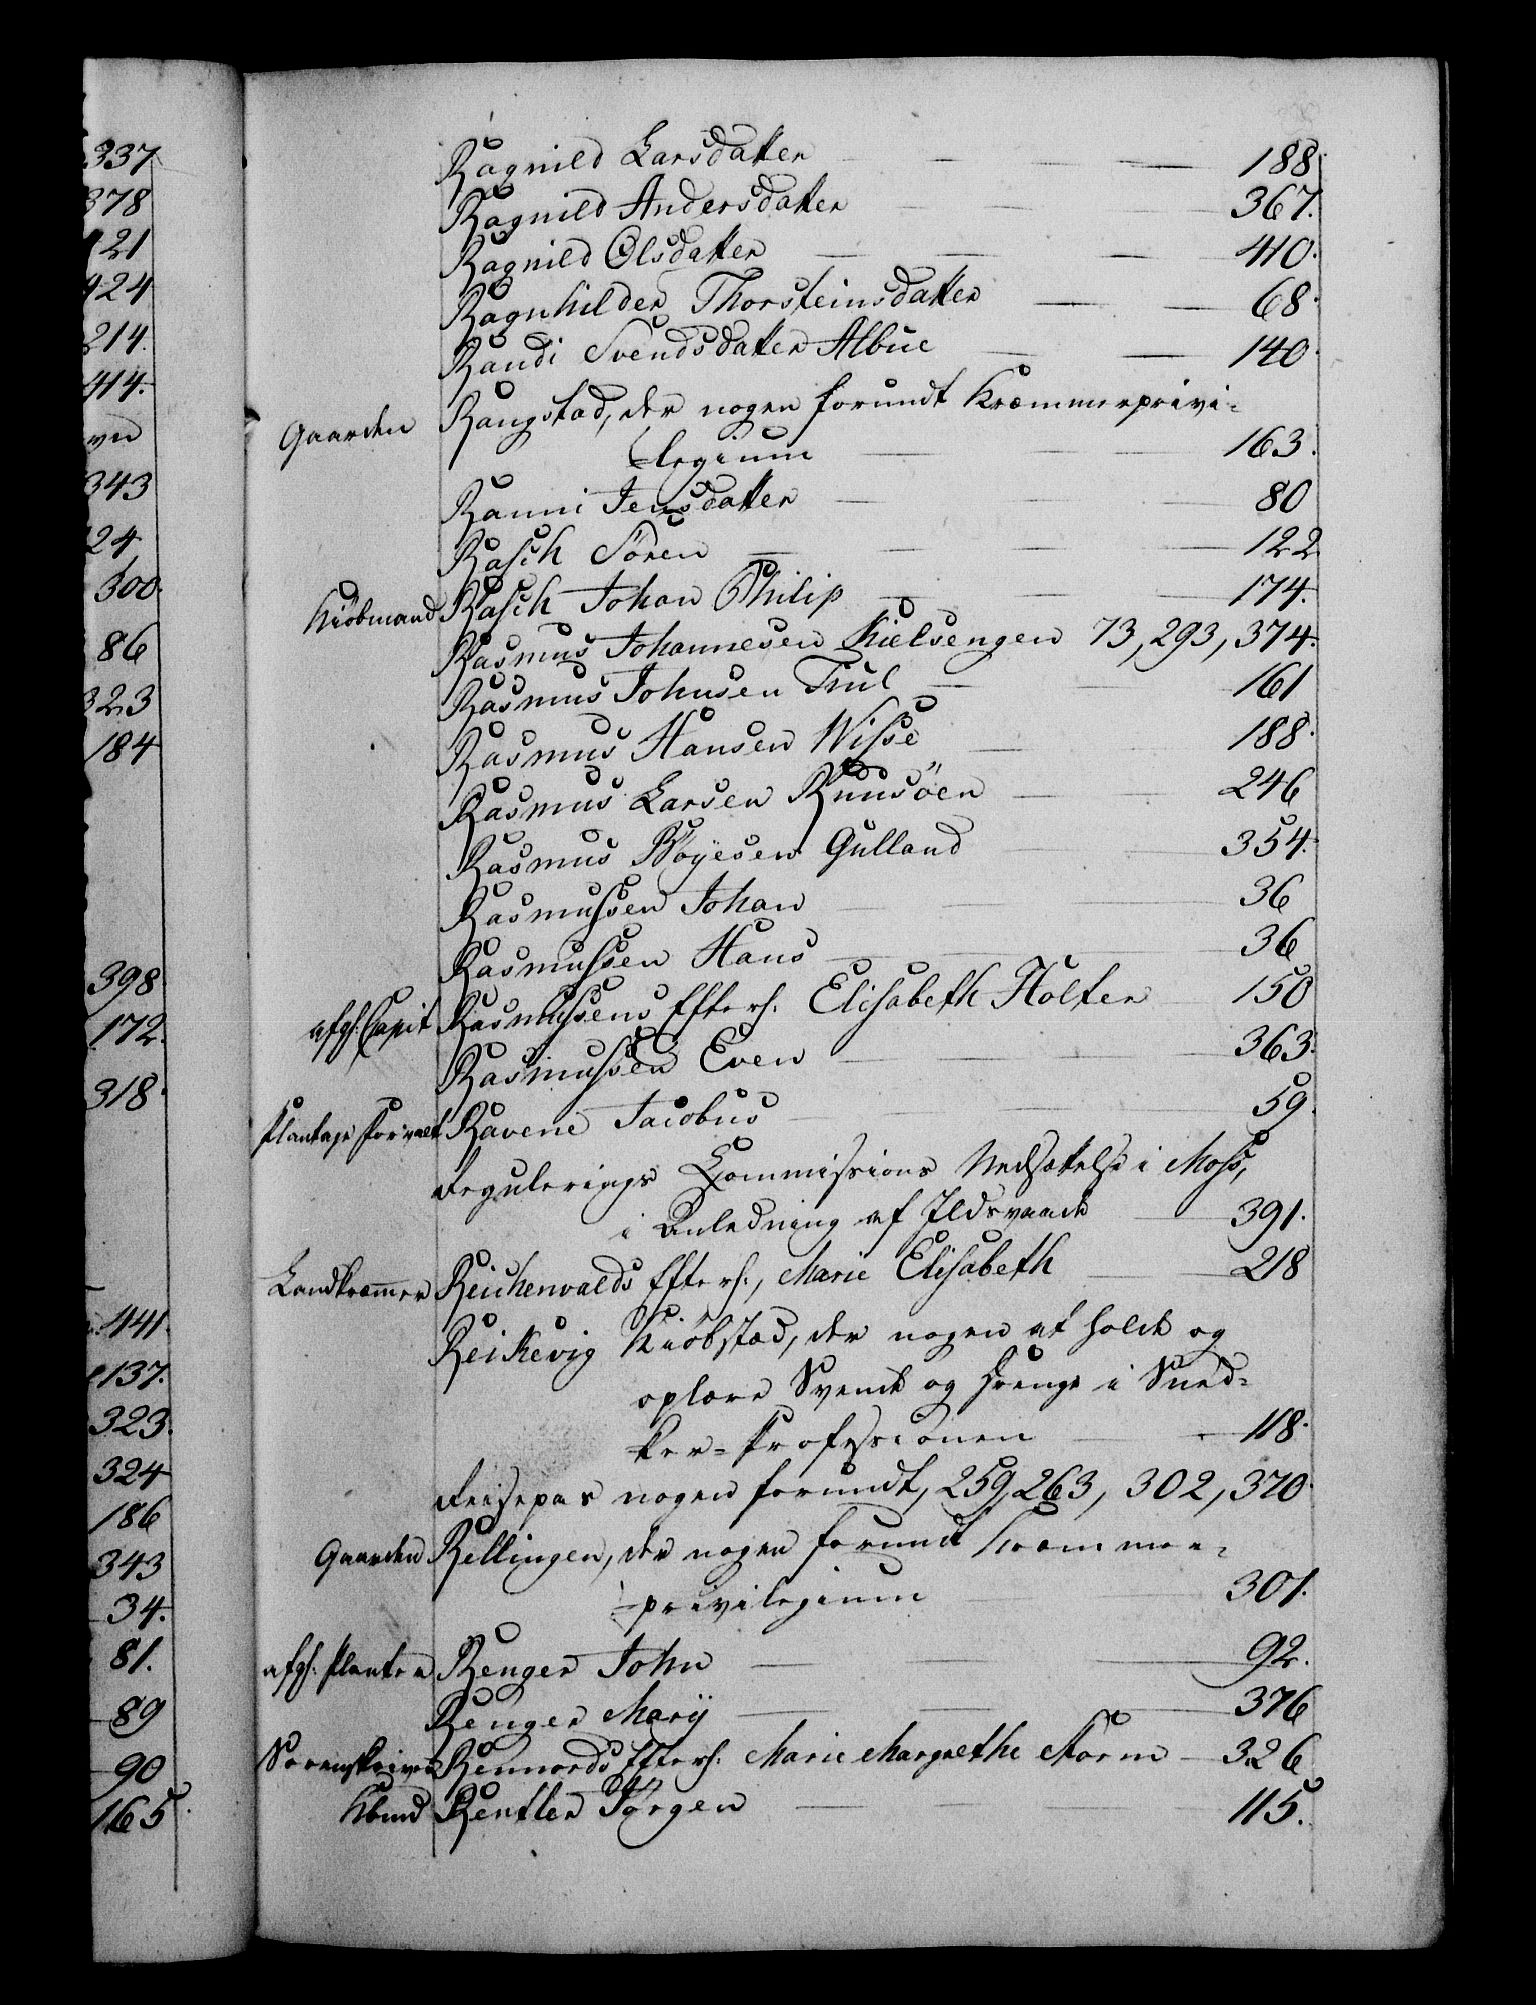 337
378
121
424
214.
414.
vn
343
24
300.
86
323
184
398
172.
318.
441.
137.
323.
324
186
343
34.
81.
89
90
165.
Ragnild Larsdatter 188.
Ragnild Andersdatter 367.
Ragnild Olsdatter 410.
Ragnhilder Thorsteinsdatter 68.
Randi Svendsdatter Albue 140.
Gaarden Rangstad, der nogen forundt Kræmmerprivi-
legium 163.
Ranni Jensdatter 80
Rasch Sören 122
Kiöbmand Rasch Johan Philip 174.
Rasmus Johannesen Kielsengen 73, 293, 374.
Rasmus Johnsen Tiul 161
Rasmus Hansen Wisse 188.
Rasmus Larsen Ruusöen 246
Rasmus Böyesen Gulland 354.
Rasmussen Johan 36
Rasmussen Hans 36
afg: Capit Rasmussens Efterl. Elisabeth Holter 150
Rasmussen Even 363.
Plantage Forvalt Ravene Jacobus 59.
Regulerings Commissions Nedsættelse i Moss,
i Anledning af Ildsvaade 391.
Landkræmmer Reichenwalds Efterl., Marie Elisabeth 218
Reikevig Kiöbstad, der nogen at holde og
oplære Svende og Drenge i Sned-
ker-Professionen 118.
Reisepas nogen forundt, 259, 263, 302, 370.
Gaarden Rellingen, der nogen forundt Kræmmer-
privilegium 301.
afg: Planter Renger John 92.
Renger Marÿ 376
Sorenskriver Rennords Efterl. Marie Margrethe Storm 326
Kbmd Rentler Jörgen 115.